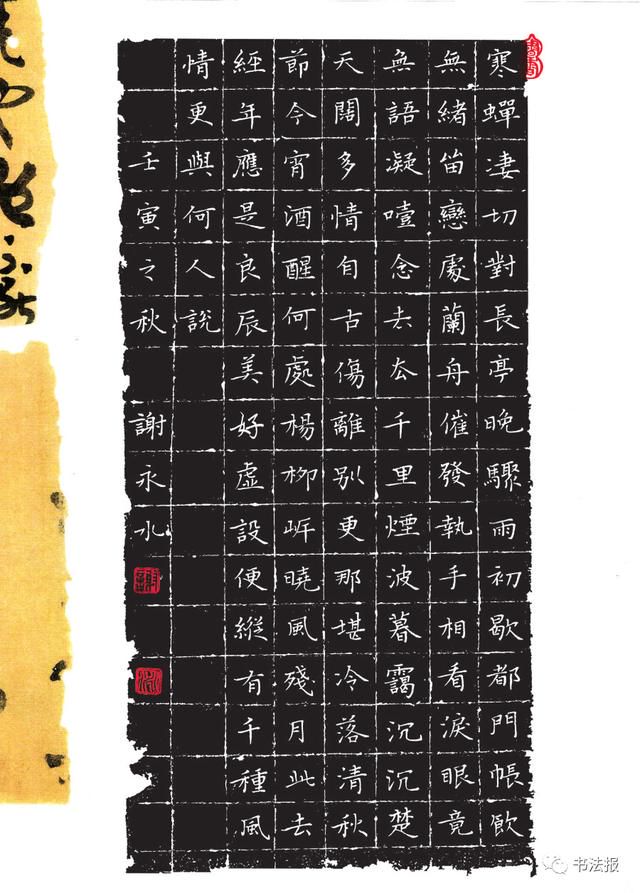 寒蟬淒切對長亭晚驟雨初歇都門帳飲
無緒笛戀處蘭舟催發執手相看淚眼竟
無語凝噎念去厺千里煙波暮靄沉沉楚
天闊多情自古傷離別更那堪冷落清秋
節今宵酒醒何處楊柳岸曉風殘月此去
經年應是良辰美好虛設便縱有千種風
情更與何人說
壬寅之秋 謝永水
书法报